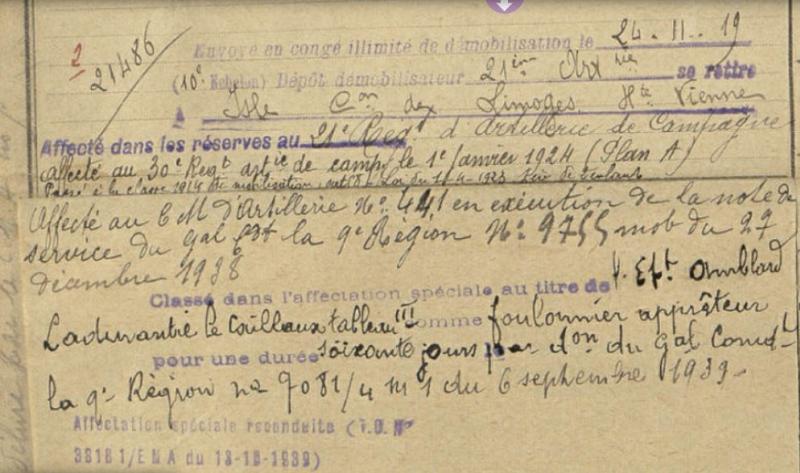 2
21486
Envoyé en congé illimité de démobilisation le 24-11-19
(10e Echelon) Dépôt démobilisateur 21ème Artie se retire
à Isle Con de Limoges Hte Vienne
Affecté dans les réserves au 21e Régt d'Artillerie de Campagne
affecté au 30e Regt artie de camp. le 1er Janvier 1924 (Plan A)
Passé à la classe 1914 de mobilisation, Loi du 1-4-1923
Affecté au C M D'Artillerie No 441 en exécution de la note de
service du Gal Cdt la 9e Région No 9755 mob du 27
décembre 1938
Classé dans l'affectation spéciale au titre de Ets Amblard
tableau III comme foulonnier apprêteur
pour une durée soixante jours par don du Gal Comdt
la 9e Région no 7081/4 m 1 du 6 septembre 1939-
Affectation spéciale reconduite (I.D. No
38181/EMA du 18-10-1939)